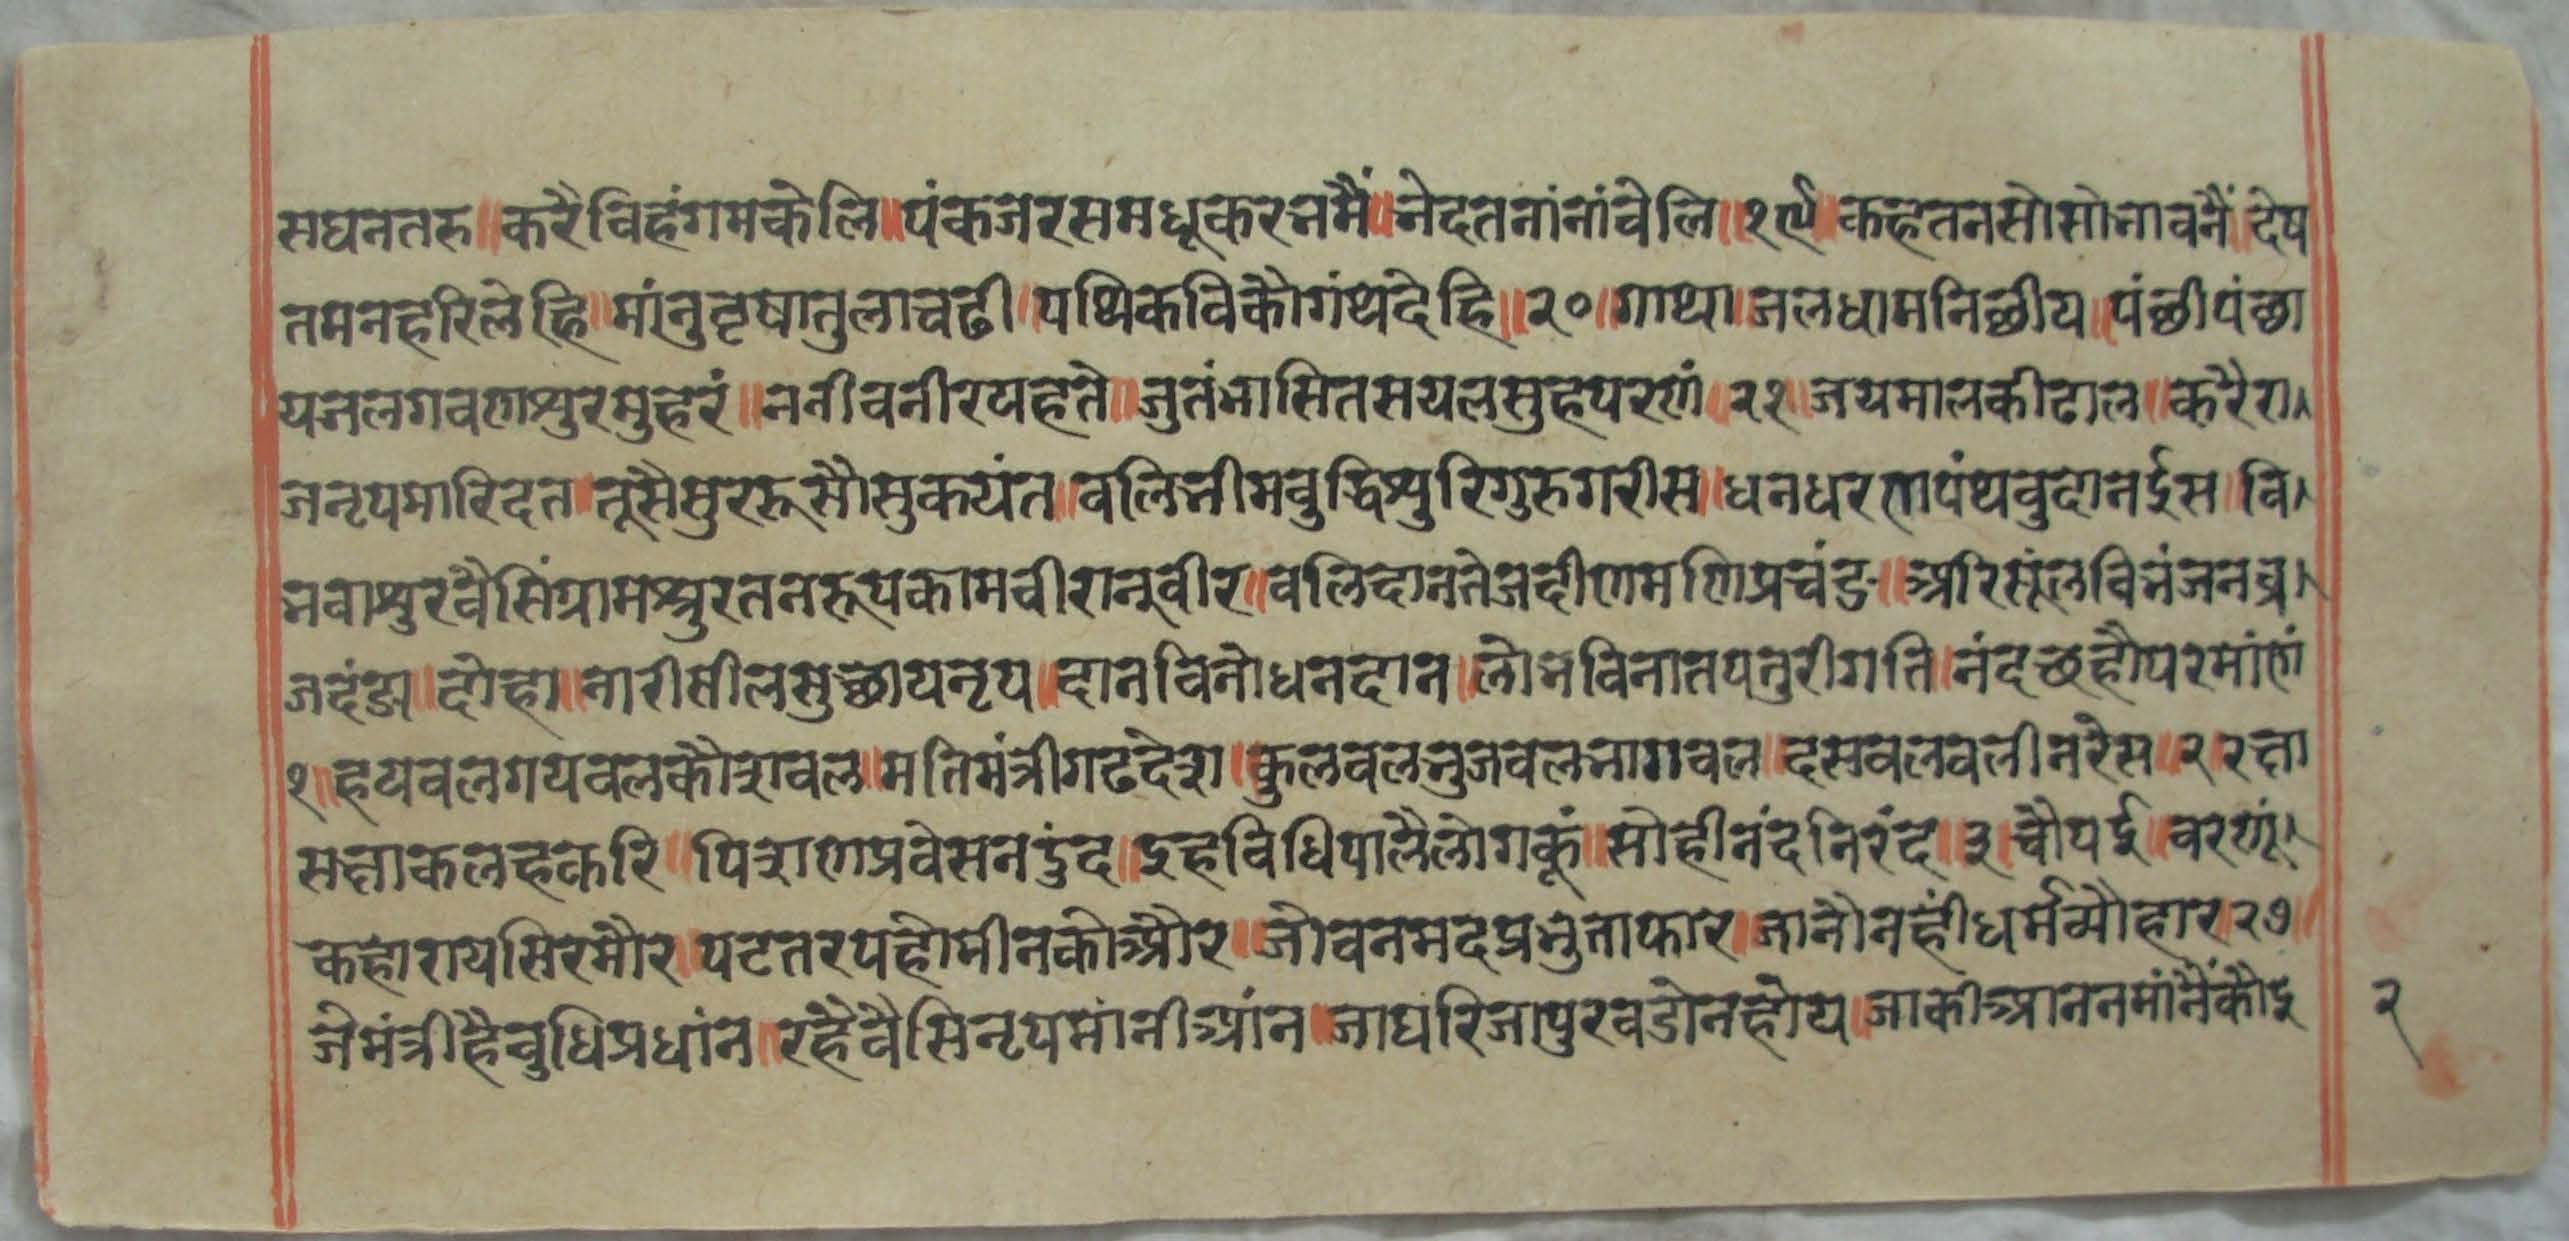 सघनतरु ॥ करैविहंगमकेलि ॥ पंकजरसमधूकरभ्रमैं ॥ भेदतनांनांवेलि ॥ १९ ॥ कहतनसोसोभावनैं ॥ देष
तमनहरिलेहि ॥ मांनुतृषातुलाचढी ॥ पथिकविकौगंथदेहि ॥ २० ॥ गाथा ॥ जलधामनिछीय ॥ पंछीपंछा
यजलगवणाश्रुरमुहरं ॥ नतीवनीरपहते ॥ जुतंभासितसयलसुहपरणं ॥ २१ ॥ जयमालकीढाल ॥ करैरा
जनृपमारिदत ॥ भूसैसुररूसौसुकयंत ॥ वलिभीमवुद्धिश्रुरिगुरुगरीस ॥ धनधरणपंथवुदानईस ॥ वि
भवाश्रुरवैसिंग्रामश्रुरतनरूपकामवीरानुवीर ॥ वलिदानतेजदीणमणिप्रचंड ॥ अरिसूंलविभंजनव्र
जदंडा ॥ दोहा ॥ नारीसीलसुछायनृप ॥ दानविनोधनदान ॥ लोभविनातपतुरीगति ॥ नंदछहौपरमांणं
१ ॥ हयवलगयवलकौरावल ॥ मतिमंत्रीगढदेश ॥ कुलवलभुजवलभागवल ॥ दसवलवलीनरेस ॥ २ ॥ रक्षा
सक्षाकलहकरि ॥ पिशणप्रवेसनदुंद ॥ इहविधिपालैलोगकूं ॥ सोहीनंदनिरंद ॥ ३ ॥ चौपई ॥ वरणूं
कहारायसिरमौर ॥ पटतरपहोमीनकोऔर ॥ जोवनमदप्रभुताफार ॥ जानौनहींधर्मव्यौहार २७ ॥
जेमंत्रीहैवुधिप्रधांन ॥ रहैवैसिनृपमांनीआंन ॥ जाघरिजापुरवडोनहोय ॥ जाकीआननमांनैकौइ
२